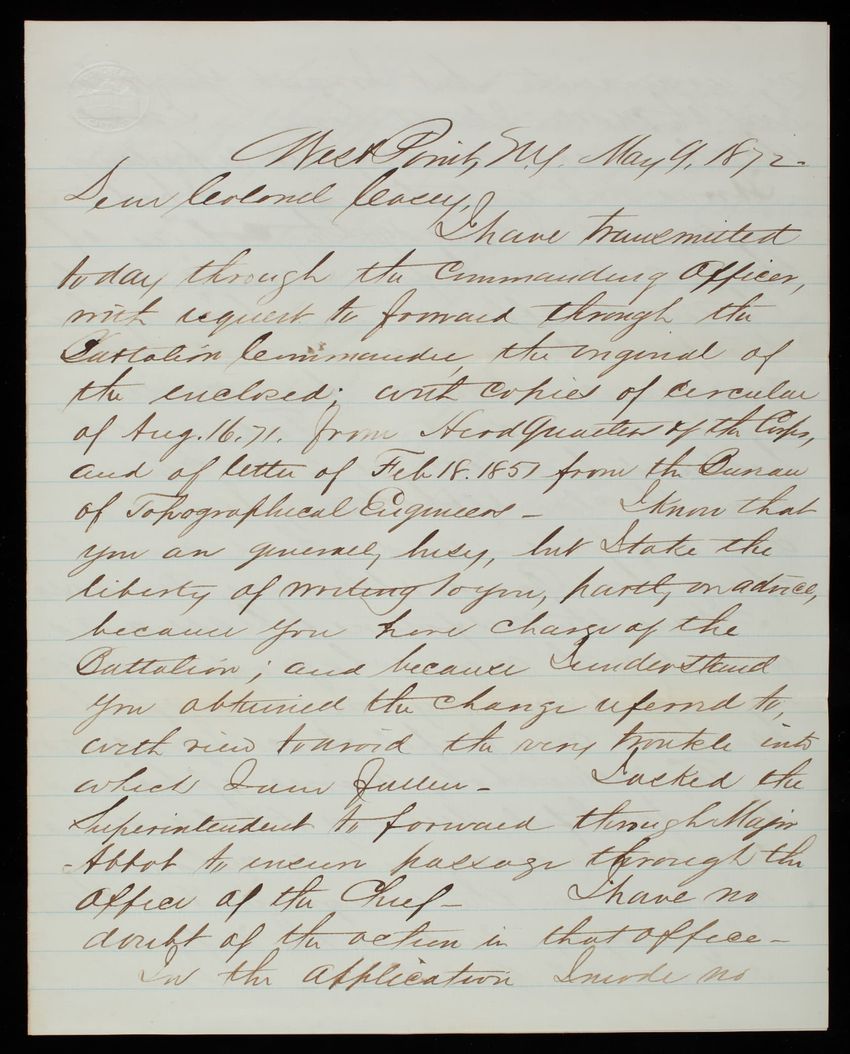 West Point, N.Y. May 9, 1872-
Dear Colonel Casey,
I have transmitted
today through the Commanding Officer,
with request to forward through the
Battalion Commander, the original of
the enclosed; with copies of circular
of Aug. 16. 71. from Head Quarters of the Corps,
and of letter of Feb 18. 1851 from the Bureau
of Topographical Engineers - I know that
you are generally busy, but I take the
liberty of writing to you, partly on advice,
because you have charge of the
Battalion; and because I understand
you obtained the change referred to,
with view to avoid the very trouble into
which I am fallen - I asked the
Superintendent to forward through Major
Abbot to insure passage through the
Office of the Chief - I have no
doubt of the action in that office -
In the application I made no